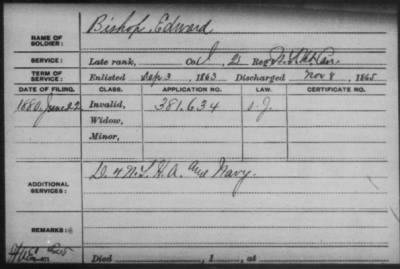 NAME OF SOLDIER: Bishop, Edward
SERVICE: Late rank, Co. I, 21 Reg't
TERM OF SERVICE: Enlisted Sep. 3, 1863 Discharged Nov 8, 1865
DATE OF FILING. CLASS. APPLICATION NO. LAW. CERTIFICATE NO.
1880, June 22 Invalid, 381.634
Widow,
Minor,
ADDITIONAL SERVICES: H. A. and Navy.
REMARKS:
Died , 1 , at